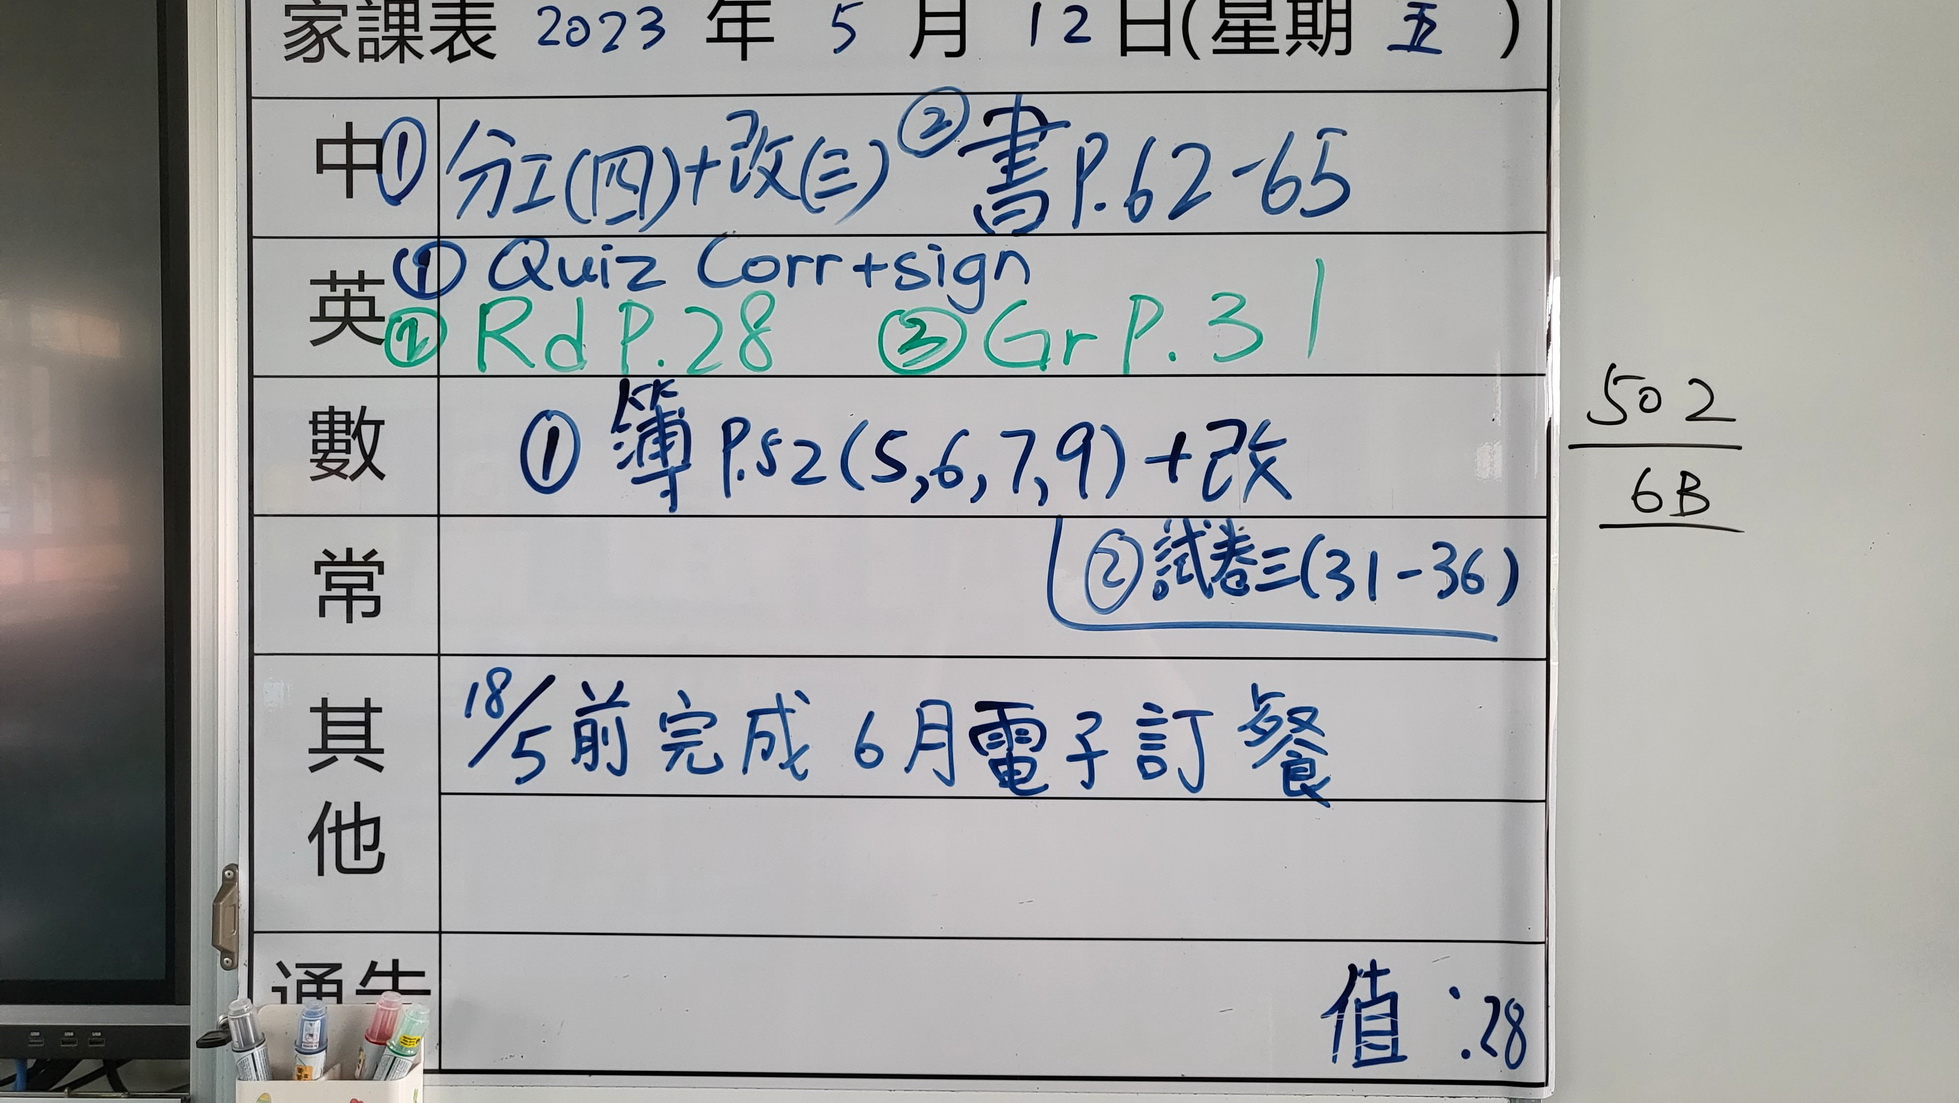 家課表 2023 年 5 月 12 日(星期 五 )
中 ① 分工(四)+改(三) ② 書P.62-65
英 ① Quiz Corr+sign
② Rd P.28 ③ Gr P.31
數 ① 簿 P.52(5,6,7,9)+改
常 ② 試卷三(31-36)
其他 18/5前完成6月電子訂餐
通告 值:28
502
6B